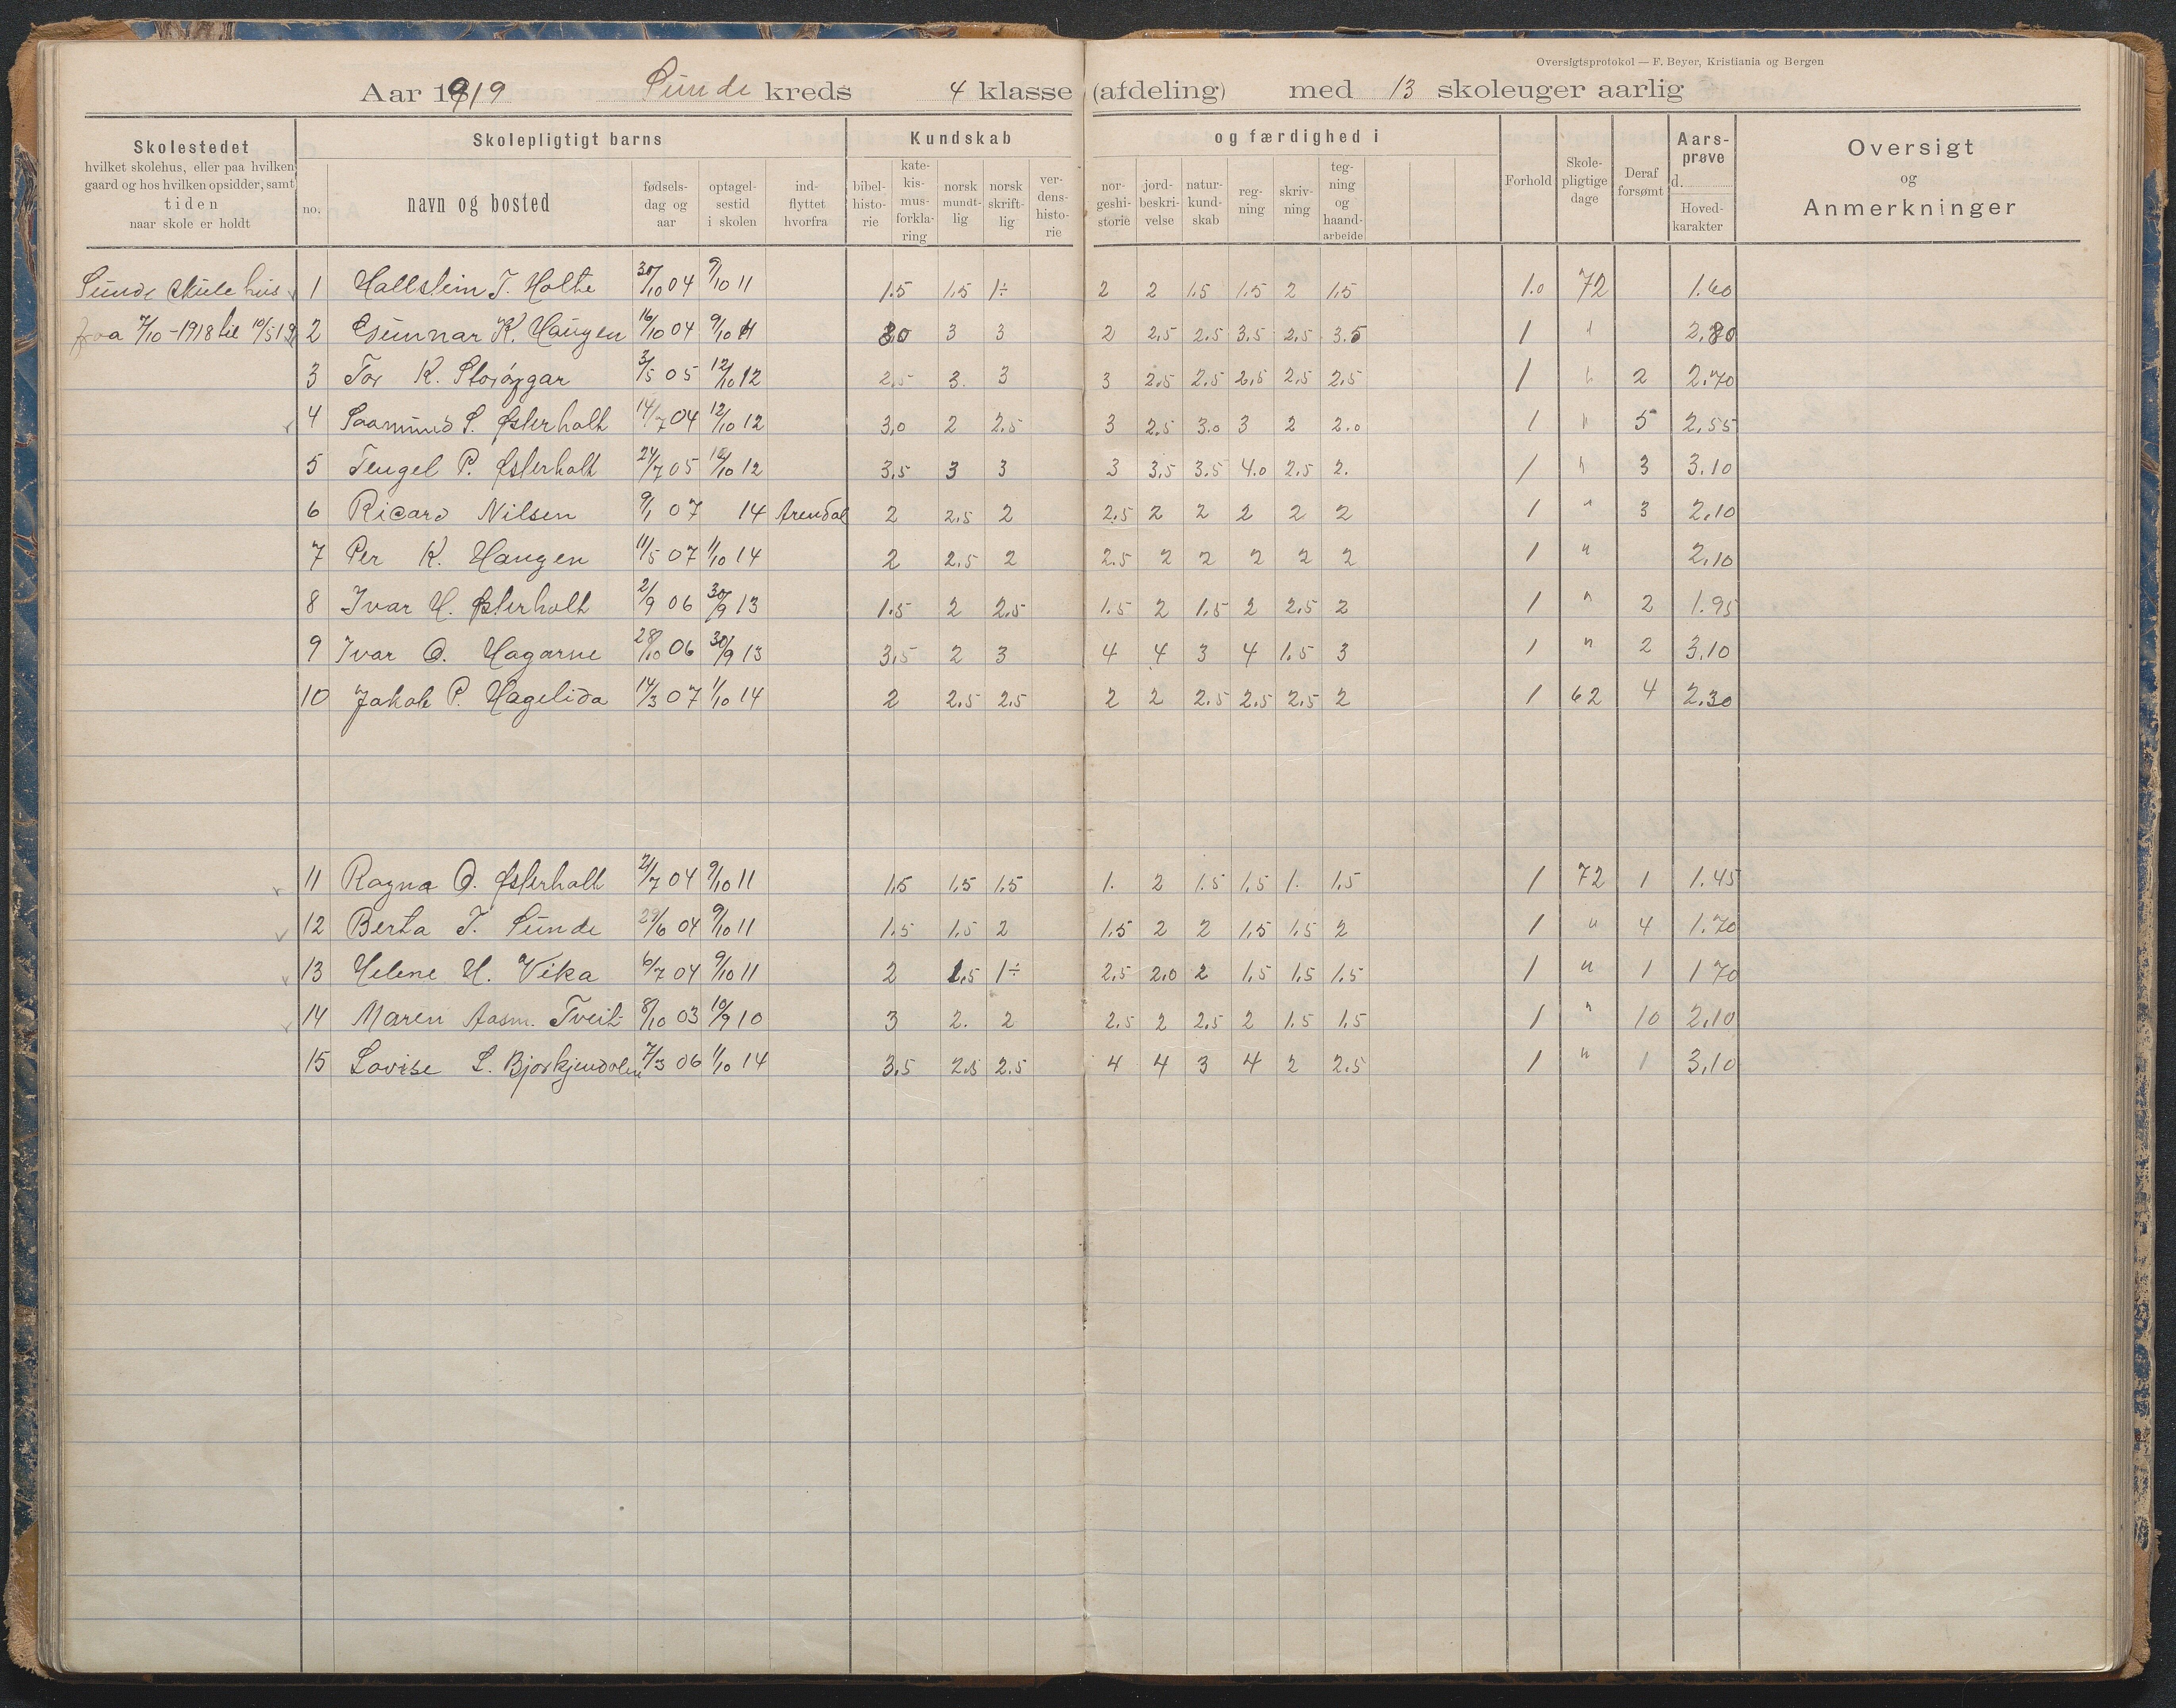 Oversigtsprotokol — F. Beyer, Kristiania og Bergen
Aar 1919 Sunde kreds 4 klasse (afdeling) med 13 skoleuger aarlig
Skolestedet
hvilket skolehus, eller paa hvilken
gaard og hos hvilken opsidder, samt
tiden
naar skole er holdt
Skolepligtigt barns
no.
navn og bosted
fødsels-
dag og
aar
optagel-
sestid
i skolen
ind-
flyttet
hvorfra
Kundskab
bibel-
histo-
rie
kate-
kis-
mus-
forkla-
ring
norsk
mundt-
lig
norsk
skrift-
lig
ver-
dens-
histo-
rie
og færdighed i
nor-
geshi-
storie
jord-
beskri-
velse
natur-
kund-
skab
reg-
ning
skriv-
ning
teg-
ning
og
haand-
arbeide
Forhold
Skole-
pligtige
dage
Deraf
forsømt
Aars-
prøve
d.
Hoved-
karakter
Oversigt
og
Anmerkninger
Sunde skule hus 1 Hallstein T. Holte 30/10 04 9/10 11 1.5 1.5 1÷ 2 2 1.5 1.5 2 1.5 1.0 72 1.60
fraa 7/10-1918 til 10/5 19 2 Gunnar K. Haugen 16/10 04 9/10 11 3.0 3 3 2 2.5 2.5 3.5 2.5 3.5 1 " 2.80
3 Tor K. 3/5 05 12/10 12 2.5 3. 3 3 2.5 2.5 2.5 2.5 2.5 1 " 2 2.70
4 Saamund S. Østerholt 14/7 04 12/10 12 3.0 2 2.5 3 2.5 3.0 3 2 2.0 1 " 5 2.55
5 Tengel P. Østerholt 24/7 05 12/10 12 3.5 3 3 3 3.5 3.5 4.0 2.5 2. 1 " 3 3.10
6 Ricard Nilsen 9/1 07 14 Arendal 2 2.5 2 2.5 2 2 2 2 2 1 " 3 2.10
7 Per K. Haugen 11/5 07 1/10 14 2 2.5 2 2.5 2 2 2 2 2 1 " 2.10
8 Ivar H. Østerholt 2/9 06 30/9 13 1.5 2 2.5 1.5 2 1.5 2 2.5 2 1 " 2 1.95
9 Ivar O. Hagane 28/10 06 30/9 13 3.5 2 3 4 4 3 4 1.5 3 1 " 2 3.10
10 Jakob P. Hagelida 14/3 07 1/10 14 2 2.5 2.5 2 2 2.5 2.5 2.5 2 1 62 4 2.30
11 Ragna O. Østerholt 21/7 04 9/10 11 1.5 1.5 1.5 1. 2 1.5 1.5 1. 1.5 1 72 1 1.45
12 Berta T. Sunde 29/6 04 9/10 11 1.5 1.5 2 1.5 2 2 1.5 1.5 2 1 " 4 1.70
13 Helene H. Vika 6/7 04 9/10 11 2 1.5 1÷ 2.5 2.0 2 1.5 1.5 1.5 1 " 1 1 70
14 Maren Aasm. Tveit 8/10 03 10/9 10 3 2. 2 2.5 2 2.5 2 1.5 1.5 1 " 10 2.10
15 Lovise L. Bjorkjendalen 7/3 06 1/10 14 3.5 2.5 2.5 4 4 3 4 2 2.5 1 " 1 3.10